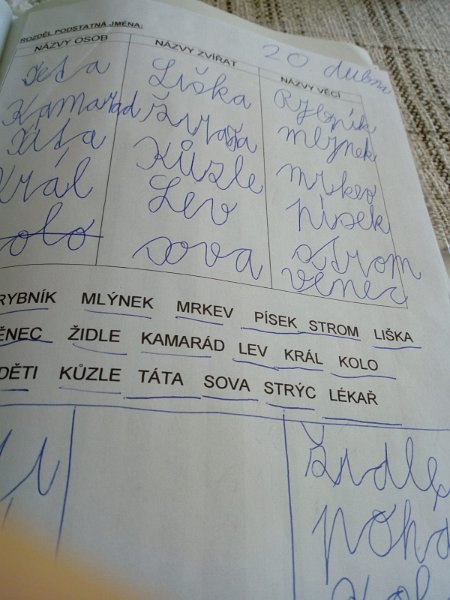 ROZDĚL PODSTATNÁ JMÉNA:
20 dubna
NÁZVY OSOB NÁZVY ZVÍŘAT NÁZVY VĚCÍ
Liška Rybník
Kamarád mlýnek
Kůzle mrkev
Král Lev písek
olo sova strom
věnec
RYBNÍK MLÝNEK MRKEV PÍSEK STROM LIŠKA
ĚNEC ŽIDLE KAMARÁD LEV KRÁL KOLO
DĚTI KŮZLE TÁTA SOVA STRÝC LÉKAŘ
židle